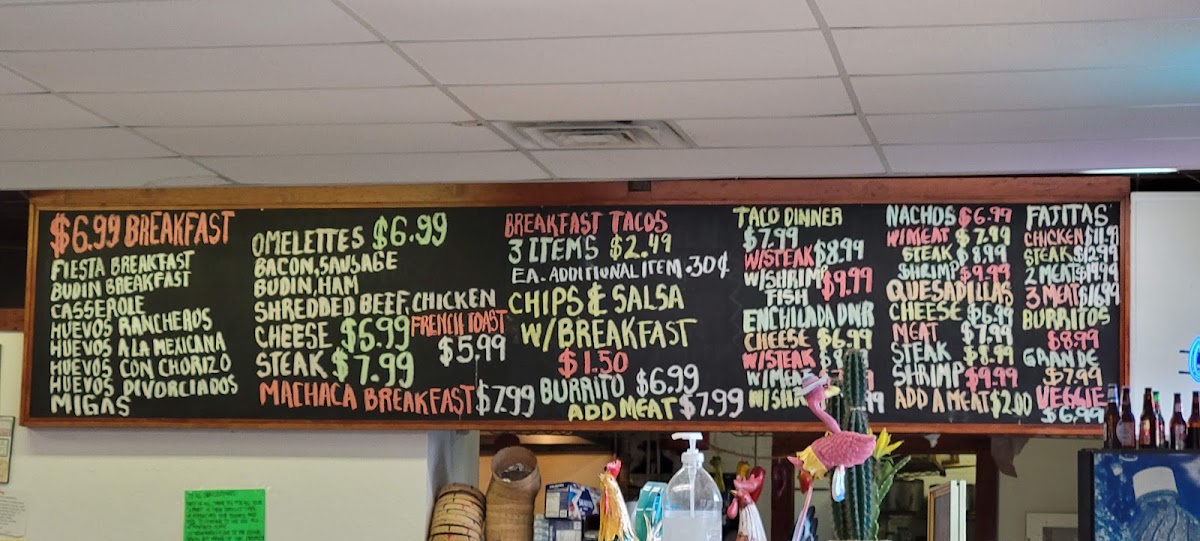 $6.99 BREAKFAST
FIESTA BREAKFAST
BUDIN BREAKFAST
CASSEROLE
HUEVOS RANCHEROS
HUEVOS A LA MEXICANA
HUEVOS CON CHORIZO
HUEVOS DIVORCIADOS
MIGAS
OMELETTES $6.99
BACON, SAUSAGE
BUDIN, HAM
SHREDDED BEEF, CHICKEN
CHEESE $6.99
STEAK $7.99
FRENCH TOAST
$5.99
MACHACA BREAKFAST $7.99
BREAKFAST TACOS
3 ITEMS $2.49
EA. ADDITIONAL ITEM .30¢
CHIPS & SALSA
W/BREAKFAST
$1.50
BURRITO $6.99
ADD MEAT $7.99
TACO DINNER
$7.99
W/STEAK $8.99
W/SHRIMP $9.99
FISH
ENCHILADA DNR
CHEESE $6.99
W/STEAK
W/MEAT
NACHOS $6.99
W/MEAT $7.99
STEAK $8.99
SHRIMP $9.99
QUESADILLAS
CHEESE $6.99
MEAT $7.99
STEAK $8.99
SHRIMP $9.99
ADD A MEAT $2.00
FAJITAS
CHICKEN $11.99
STEAK $12.99
2 MEAT $14.99
3 MEAT $16.99
BURRITOS
$8.99
GRANDE
$7.99
VEGGIE
$6.99